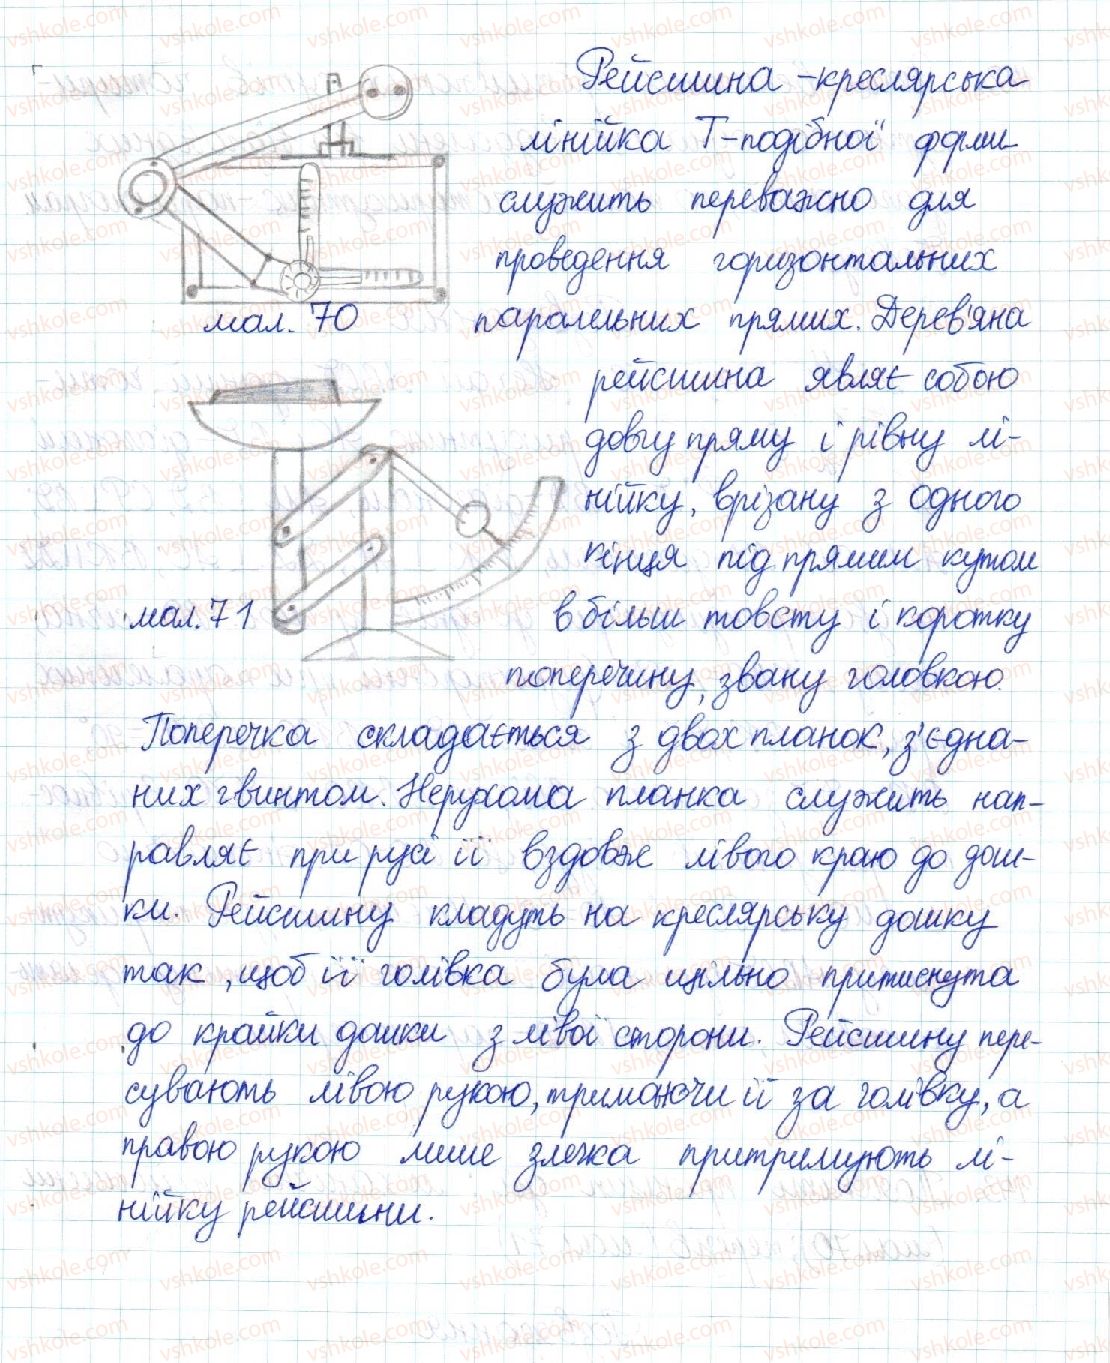 Рейсшина - креслярська
лінійка Т-подібної форми
служить переважно для
проведення горизонтальних
мал. 70
паралельних прямих. Дерев'яна
рейсшина являє собою
довгу пряму і рівну лі-
нійку, врізану з одного
кінця під прямим кутом
мал. 71
в більш товсту і коротку
поперечину, звану головкою.
Поперечка складається з двох планок, з'єдна-
них гвинтом. Нерухома планка служить нап-
равляє при русі її вздовж лівого краю до дош-
ки. Рейсшину кладуть на креслярську дошку
так, щоб її голівка була щільно притиснута
до крайки дошки з лівої сторони. Рейсшину пере-
сувають лівою рукою, тримаючи її за голівку, а
правою рукою лише злегка притримують лі-
нійку рейсшини.
vshkole.com